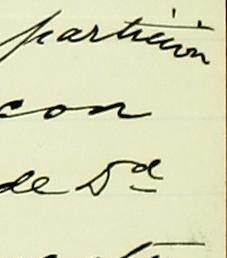 partición
con
de Sd